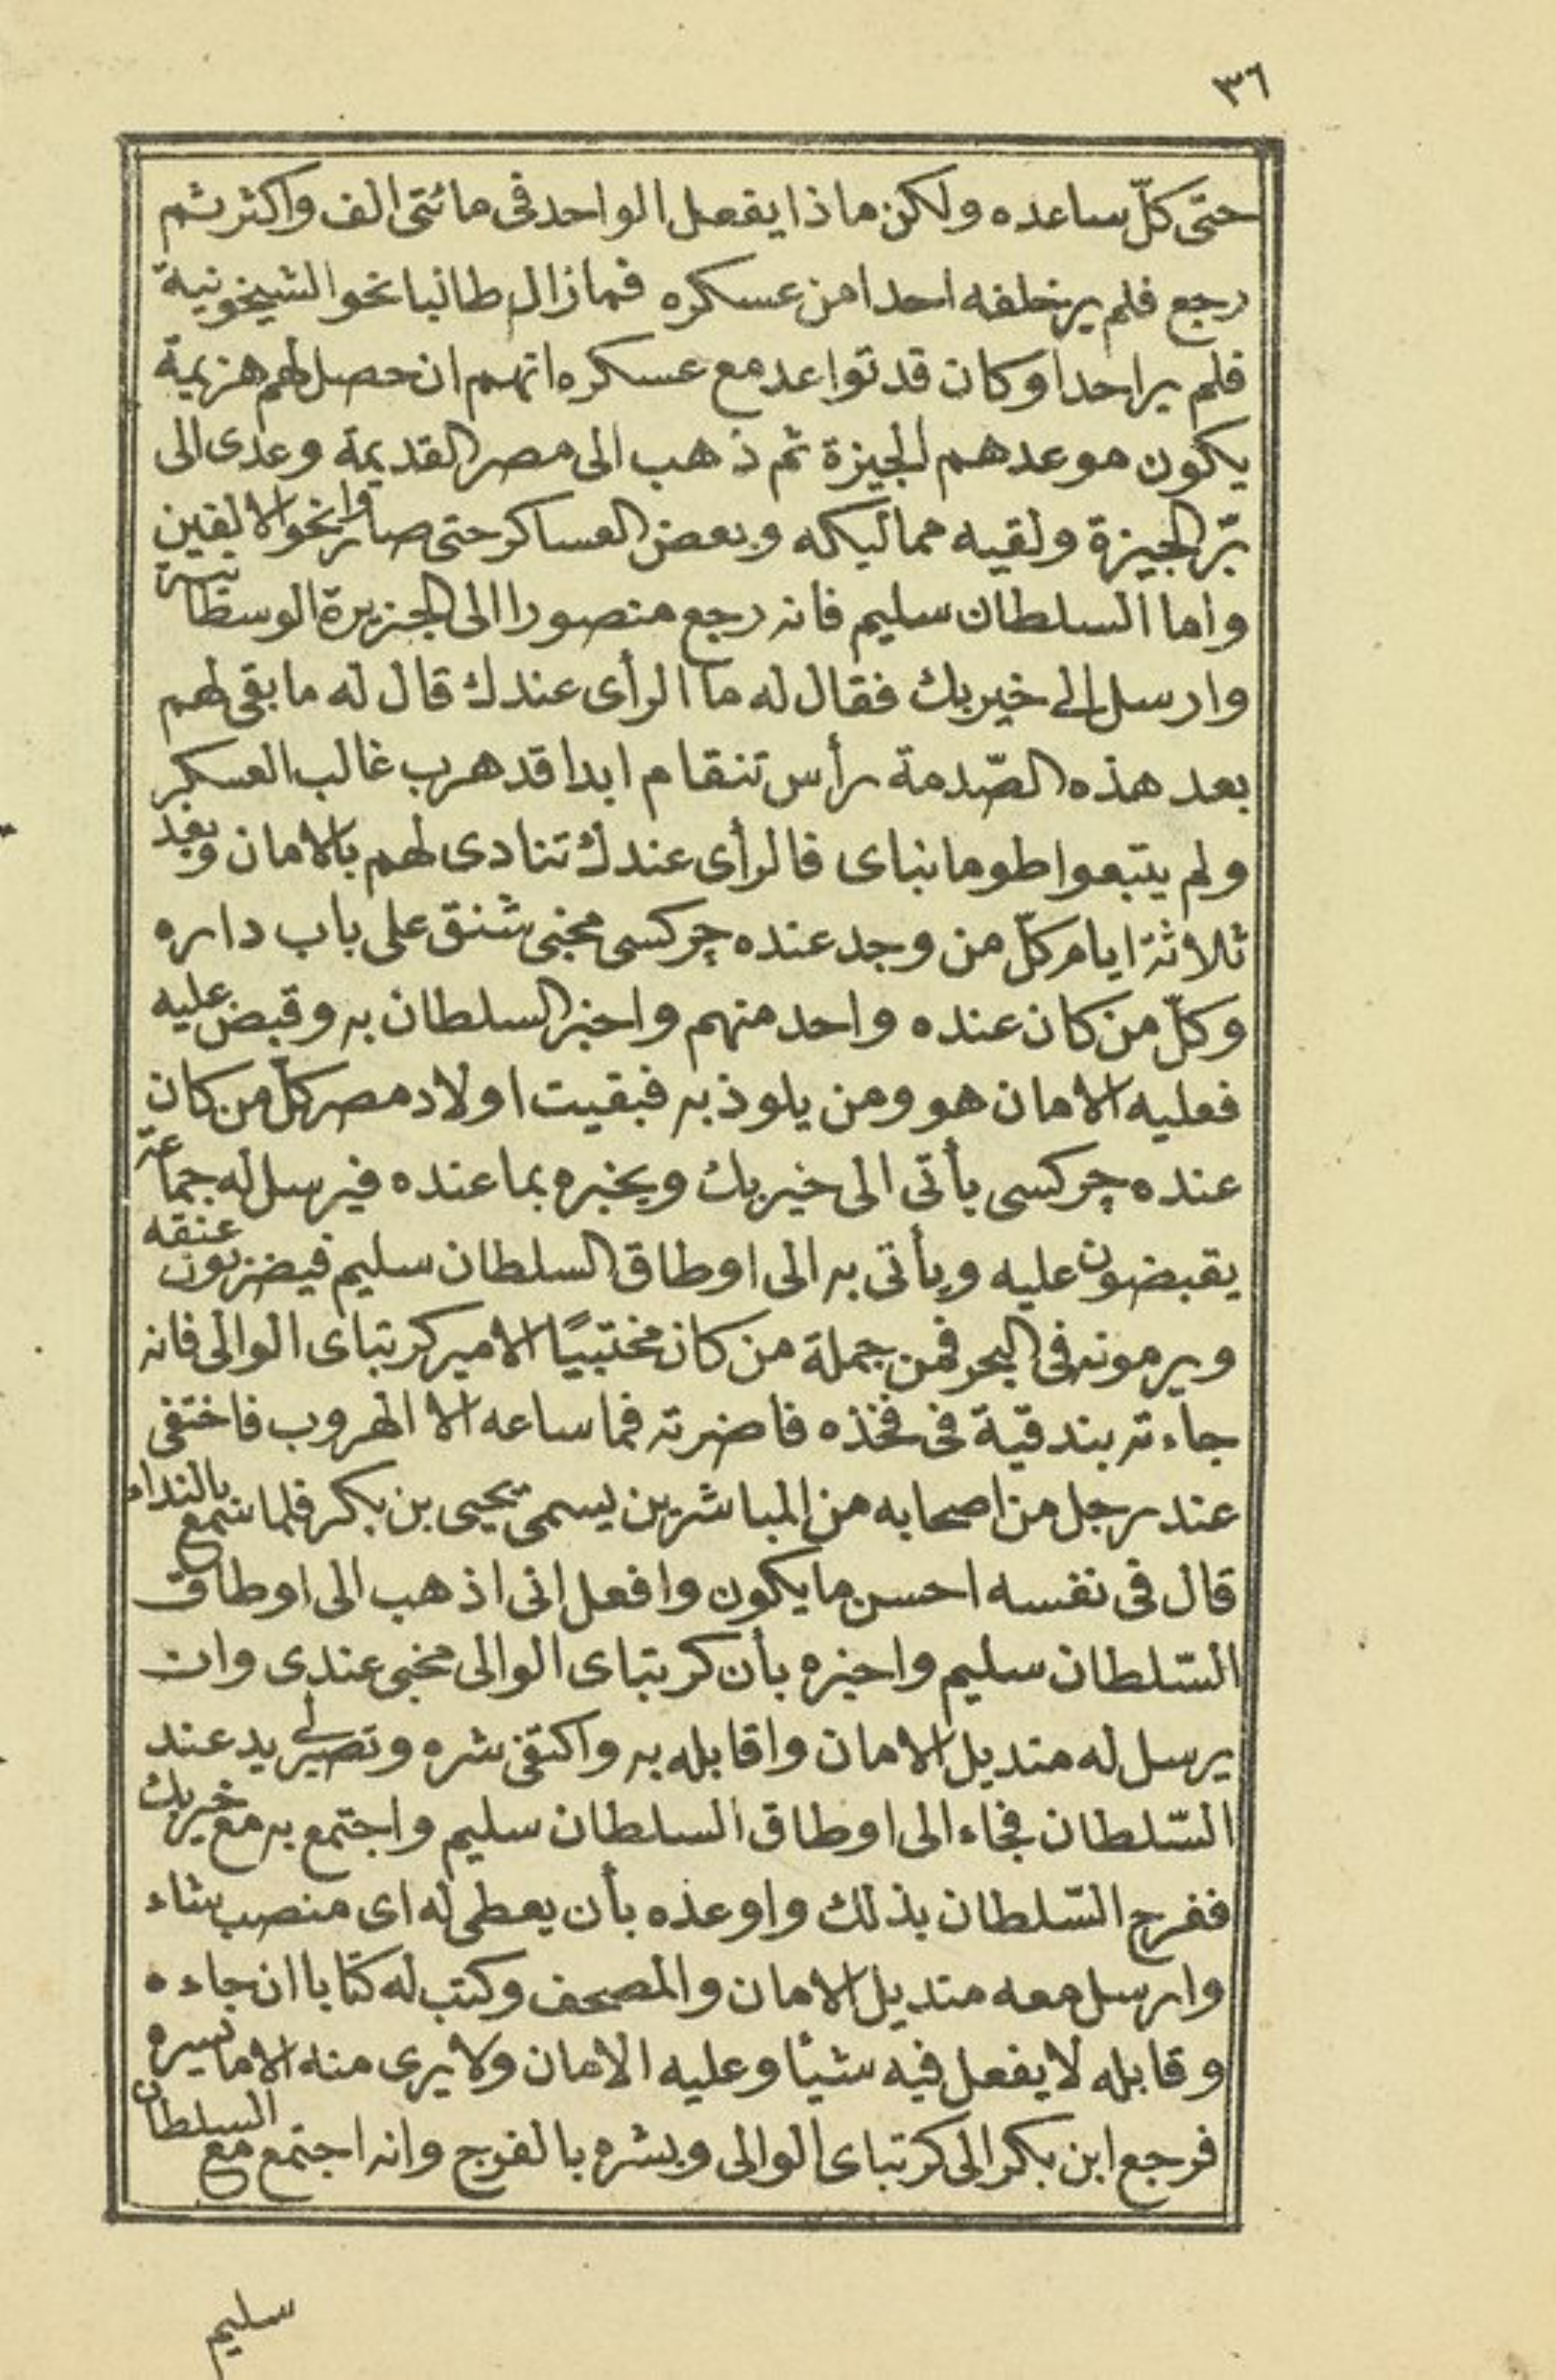 ٣٦
حتى كلّ ساعده ولكن ماذا يفعل الواحد فى مائتى الف واكثر ثم
رجع فلم ير خلفه احدا من عسكره فمازال طالبا نحو الشيخونية
فلم ير احدا وكان قد تواعد مع عسكره انهم ان حصل لهم هزيمة
يكون موعدهم الجيزة ثم ذهب الى مصر القديمة وعدى الى
برّ الجيزة ولقيه مماليكه وبعض العساكر حتى صاروا نحو الالفين
واما السلطان سليم فانه رجع منصورا الى الجزيرة الوسطانية
وارسل الى خيربك فقال له ما الرأى عندك قال له ما بقى لهم
بعد هذه الصّدمة رأس تنقام ابدا قد هرب غالب العسكر
ولم يتبعوا طومانباى فالرأى عندك تنادى لهم بالامان وبعد
ثلاثة ايام كلّ من وجد عنده چركسى مخبى شنق على باب داره
وكلّ من كان عنده واحد منهم واخبر السلطان به وقبض عليه
فعليه الامان هو ومن يلوذ به فبقيت اولاد مصر كلّ من كان
عنده چركسى يأتى الى خيربك ويخبره بما عنده فيرسل له جماعة
يقبضون عليه ويأتى به الى اوطاق السلطان سليم فيضربون عنقه
ويرمونه فى البحر فمن جملة من كان مختبيًا الامير كرتباى الوالى فانه
جاءته بندقية فى فخذه فاضرته فما ساعه الا الهروب فاختفى
عند رجل من اصحابه من المباشرين يسمى يحيى بن بكر فلما سمع بالنداء
قال فى نفسه احسن ما يكون وافعل انى اذهب الى اوطاق
السّلطان سليم واخبره بأن كرتباى الوالى مخبى عندى وان
يرسل له منديل الامان واقابله به واكتفى شره وتصير لى يد عند
السّلطان فجاء الى اوطاق السلطان سليم واجتمع به مع خيربك
ففرح السّلطان بذلك واوعده بأن يعطى له اى منصب شاء
وارسل معه منديل الامان والمصحف وكتب له كتابا ان جاءه
وقابله لا يفعل فيه شيئا وعليه الامان ولا يرى منه الا ما يسره
فرجع ابن بكر الى كرتباى الوالى وبشره بالفرج وانه اجتمع مع السلطان
سليم